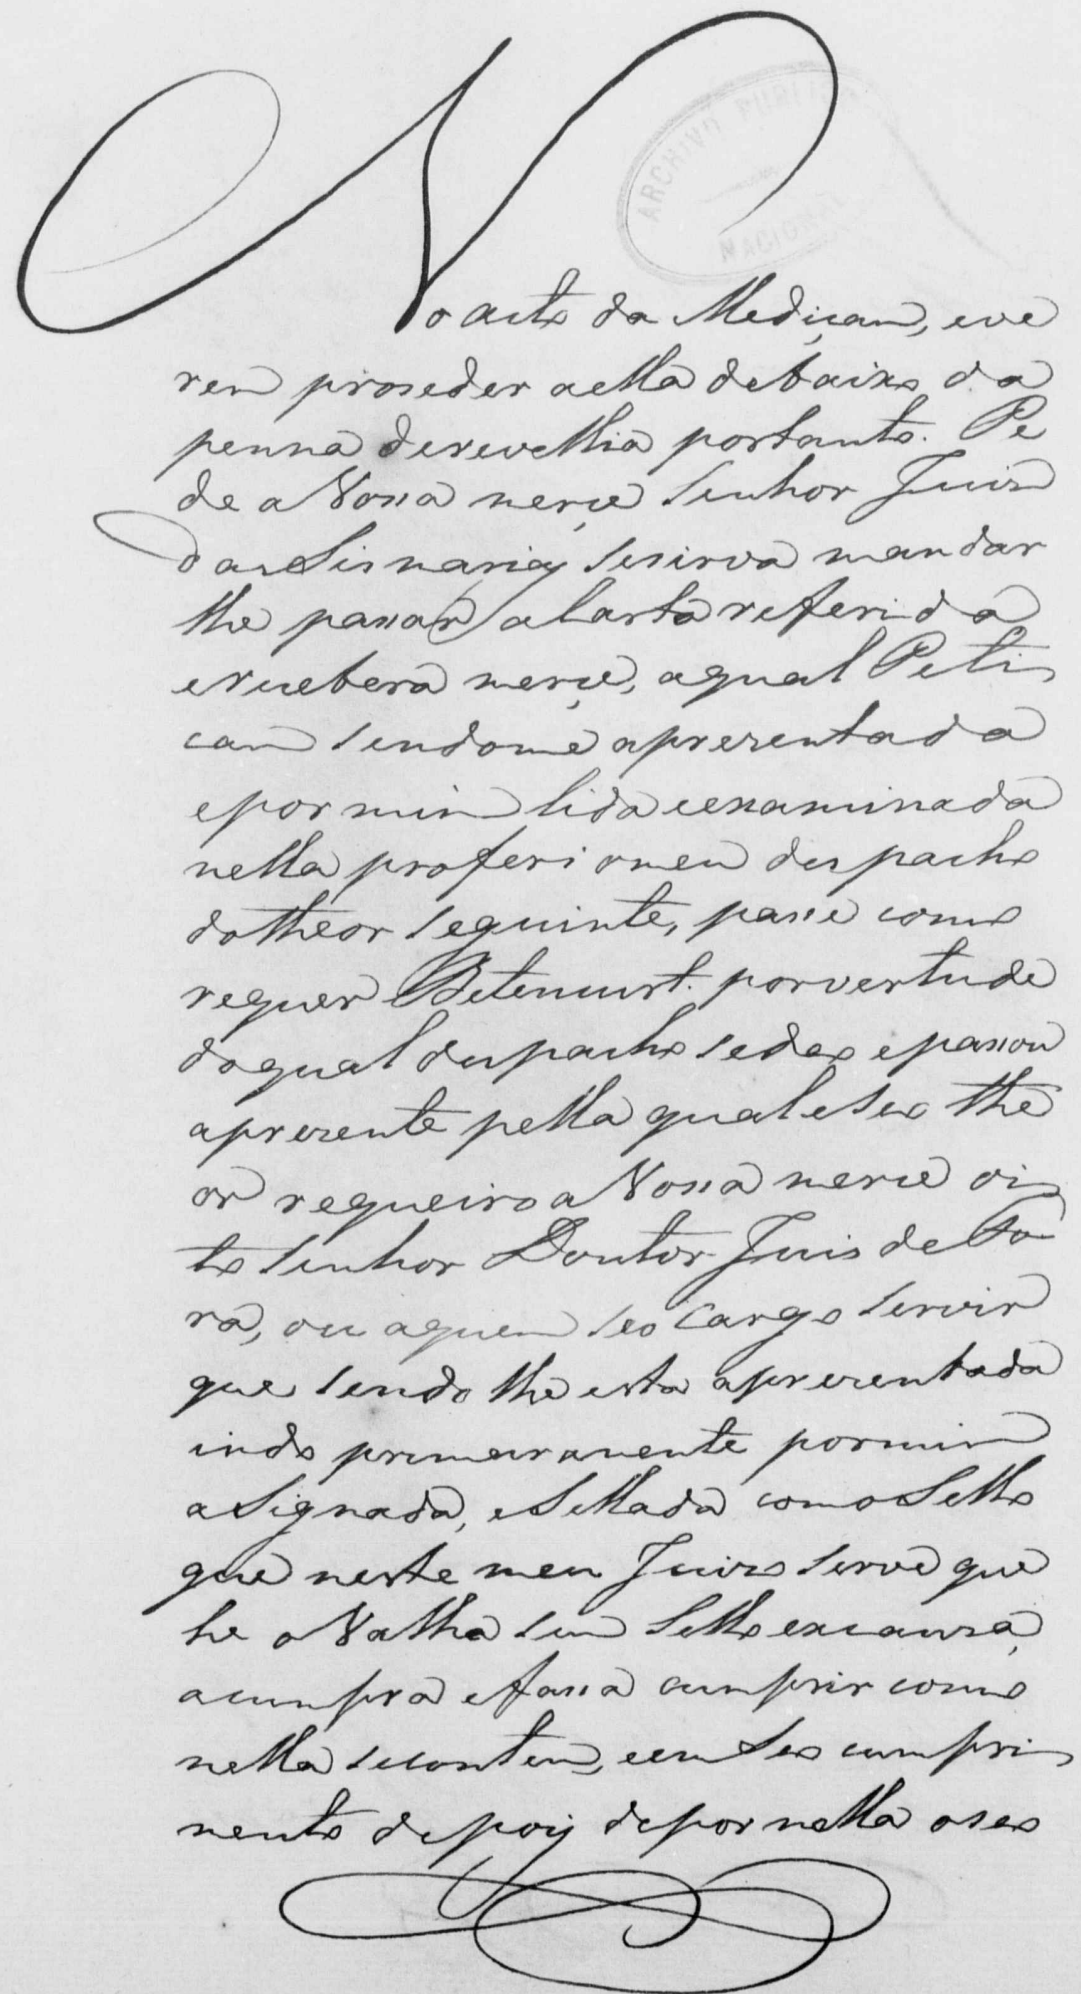 ARCHIVO PUBLICO
NACIONAL
No acto da Mediçam, eve
rem proseder aella debaixo da
penna derevellia portanto. Pe
de a Vossa merce Senhor Juis
das Sismarias seserva mandar
lhe passar a Carta referida
erecebera merce, aqual Peti
cam sendome aprezentada
epor mim lida eexaminada
nella proferi omeu despacho
dotheor seguinte, passe como
requer Betencurt. porvertude
doqual despacho sedeo epassou
aprezente pella qual eseo the
or requeiro a Vossa merce oi
to Senhor Doutor Juis de Fo
ra, ou aquem seo Cargo servir
que sendo lhe esta aprezentada
indo primeiramente pormim
aSignada, eSellada como Sello
que neste meu Juizo serve que
he o Valha sem Sello excauza,
acumpra efassa cumprir como
nella secontem, eem seo cumpri
mento depois depor nella oseo